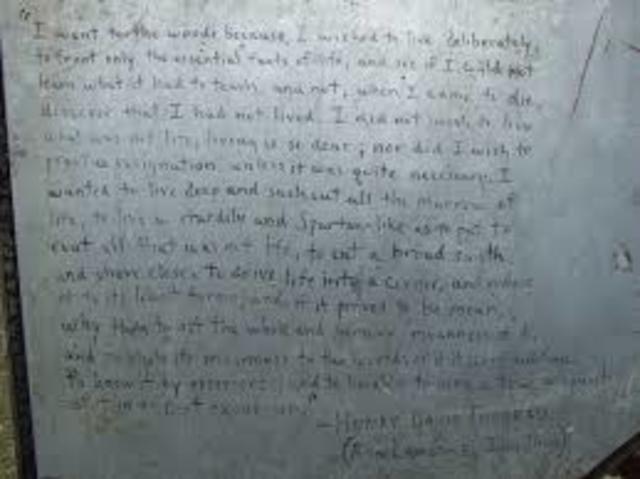 "I went to the woods because I wished to live deliberately,
to front only the essential facts of life, and see if I could not
learn what it had to teach, and not, when I came to die,
discover that I had not lived. I did not wish to live
what was not life, living is so dear; nor did I wish to
practise resignation unless it was quite necessary. I
wanted to live deep and suck out all the marrow of
life, to live so sturdily and Spartan-like as to put to
rout all that was not life, to cut a broad swath
and shave close, to drive life into a corner, and reduce
it to its lowest terms, and if it proved to be mean,
why then to get the whole and genuine meanness of it,
and publish its meanness to the world; or if it were sublime
to know it by experience, and to be able to give a true account
of it in my next excursion."
— Henry David Thoreau